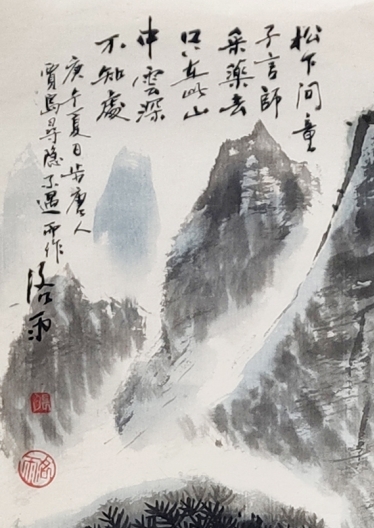 松下问童
子言師
采藥去
只在此山
中雲深
不知處
庚午夏日步唐人
賈島尋隐不遇而作
洛雨